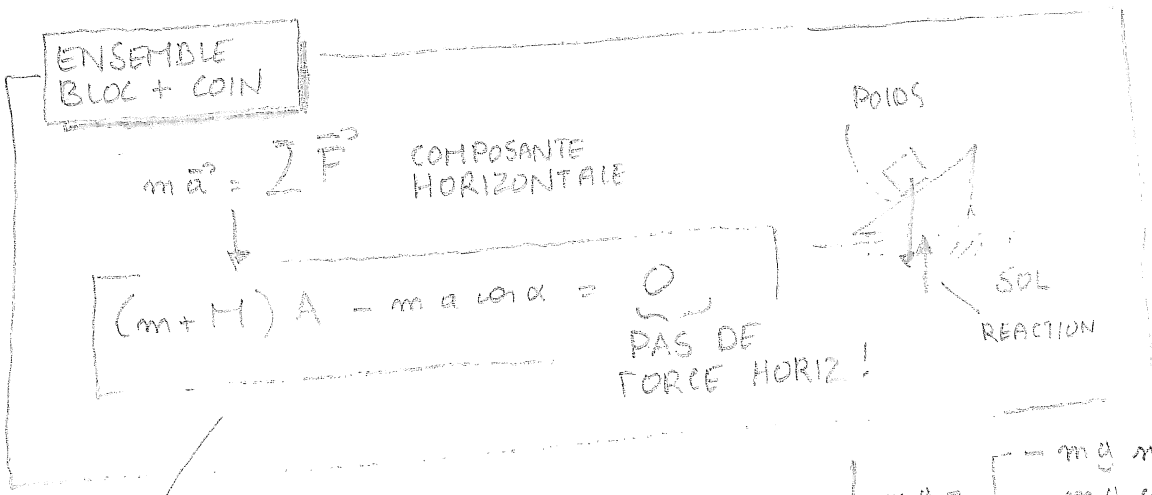 ENSEMBLE
BLOC + COIN
m a⃗ = ∑ F⃗ COMPOSANTE
HORIZONTALE
POIDS
(m + M) A - m a cos α = 0
PAS DE
FORCE HORIZ !
SOL
REACTION